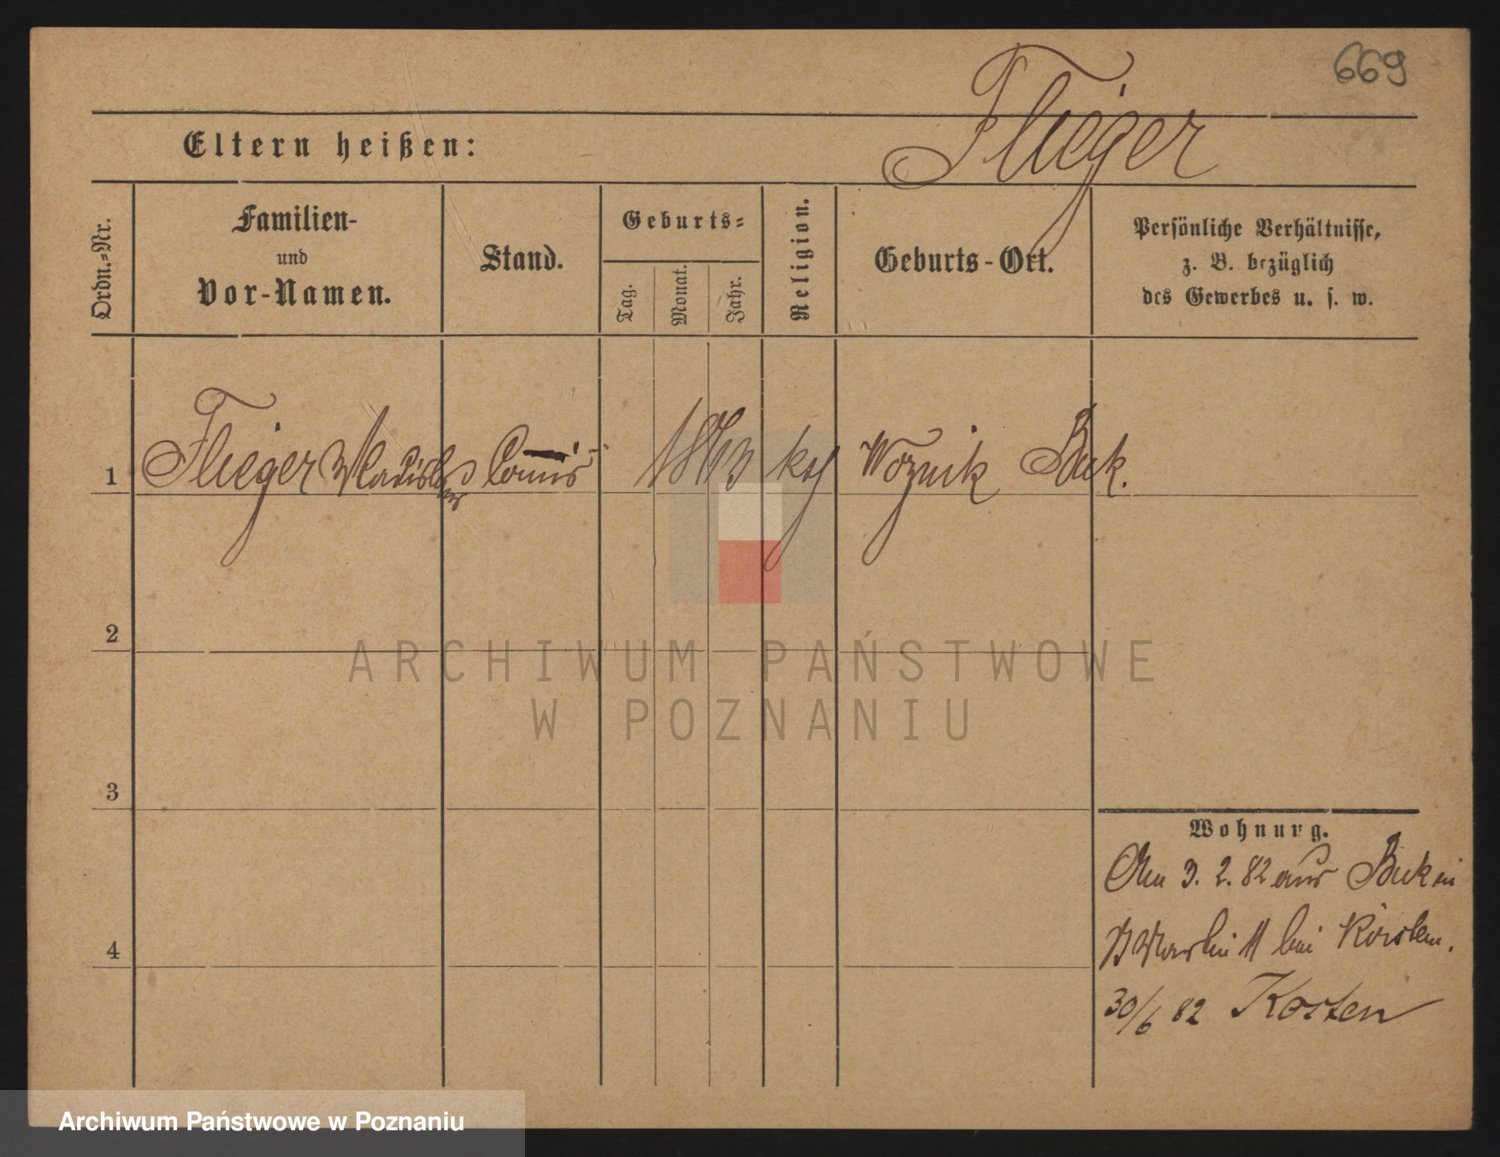 669
Flieger
Eltern heißen:
Ordn.-Nr.
Familien-
und
Vor-Namen.
Stand.
Geburts-
Tag.
Monat.
Jahr.
Religion.
Geburts-Ort.
Persönliche Verhältnisse,
z. B. bezüglich
des Gewerbes u. s. w.
1 Flieger Wladislaus Comis 1863 kth Woznik Buk.
2
3
4
Wohnung.
Am 3. 2. 82 aus Buk in
bei
30/6 82 Kosten
ARCHIWUM PAŃSTWOWE
W POZNANIU
Archiwum Państwowe w Poznaniu